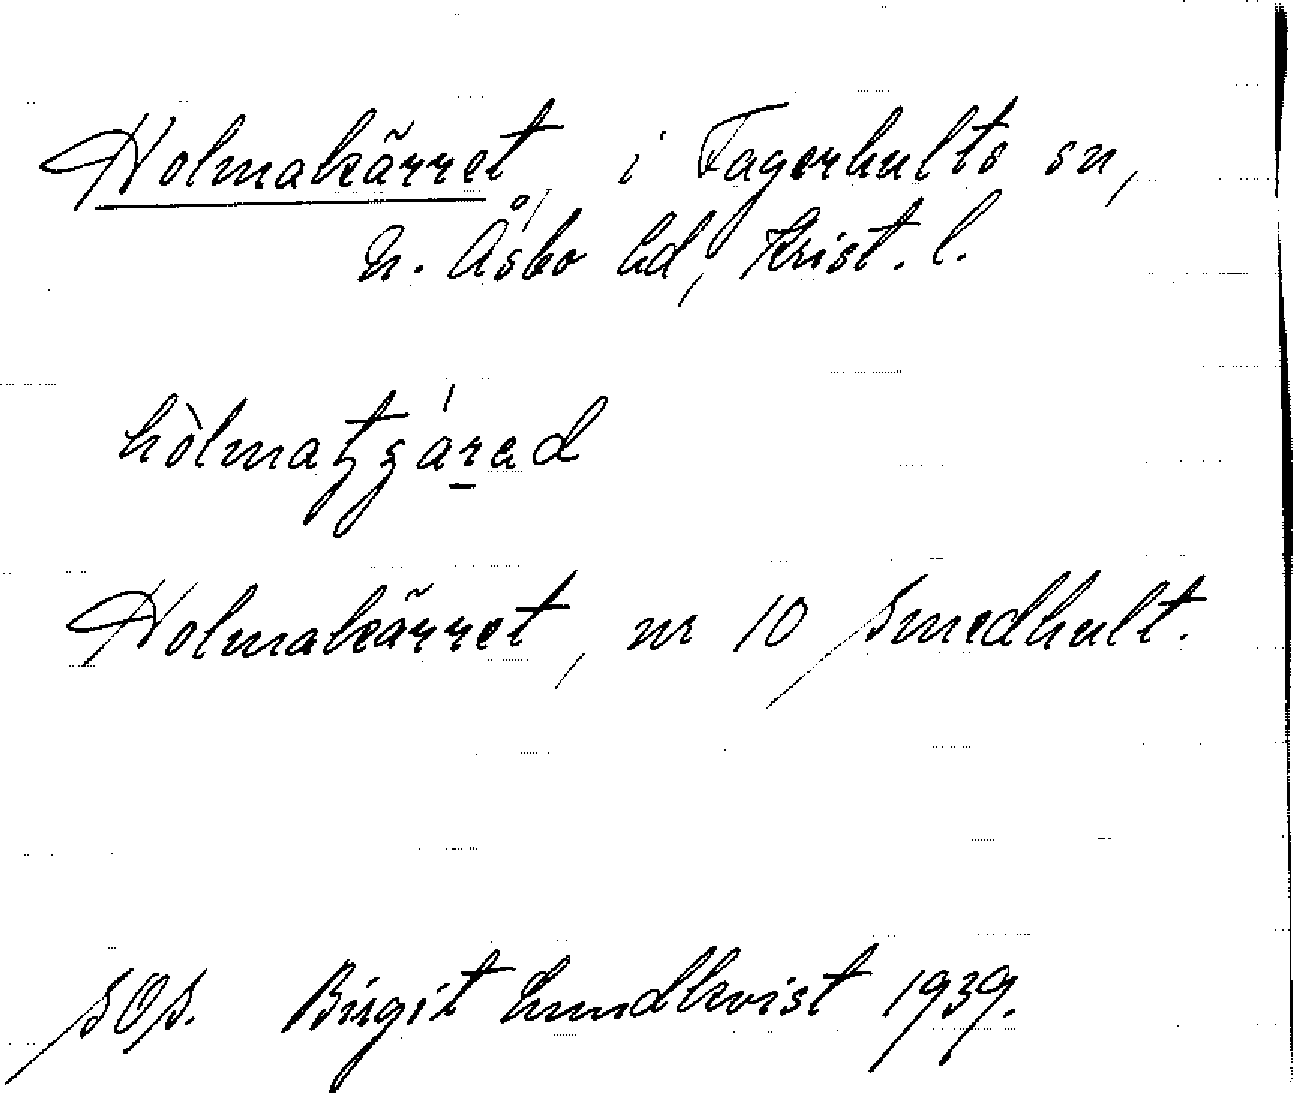 Holmakärret, i Fagerhults sn,
N. Åsbo hd, Krist. l.
Holmakärret, nr 10 Smedhult.
SOS. Birgit Lundkvist 1939.